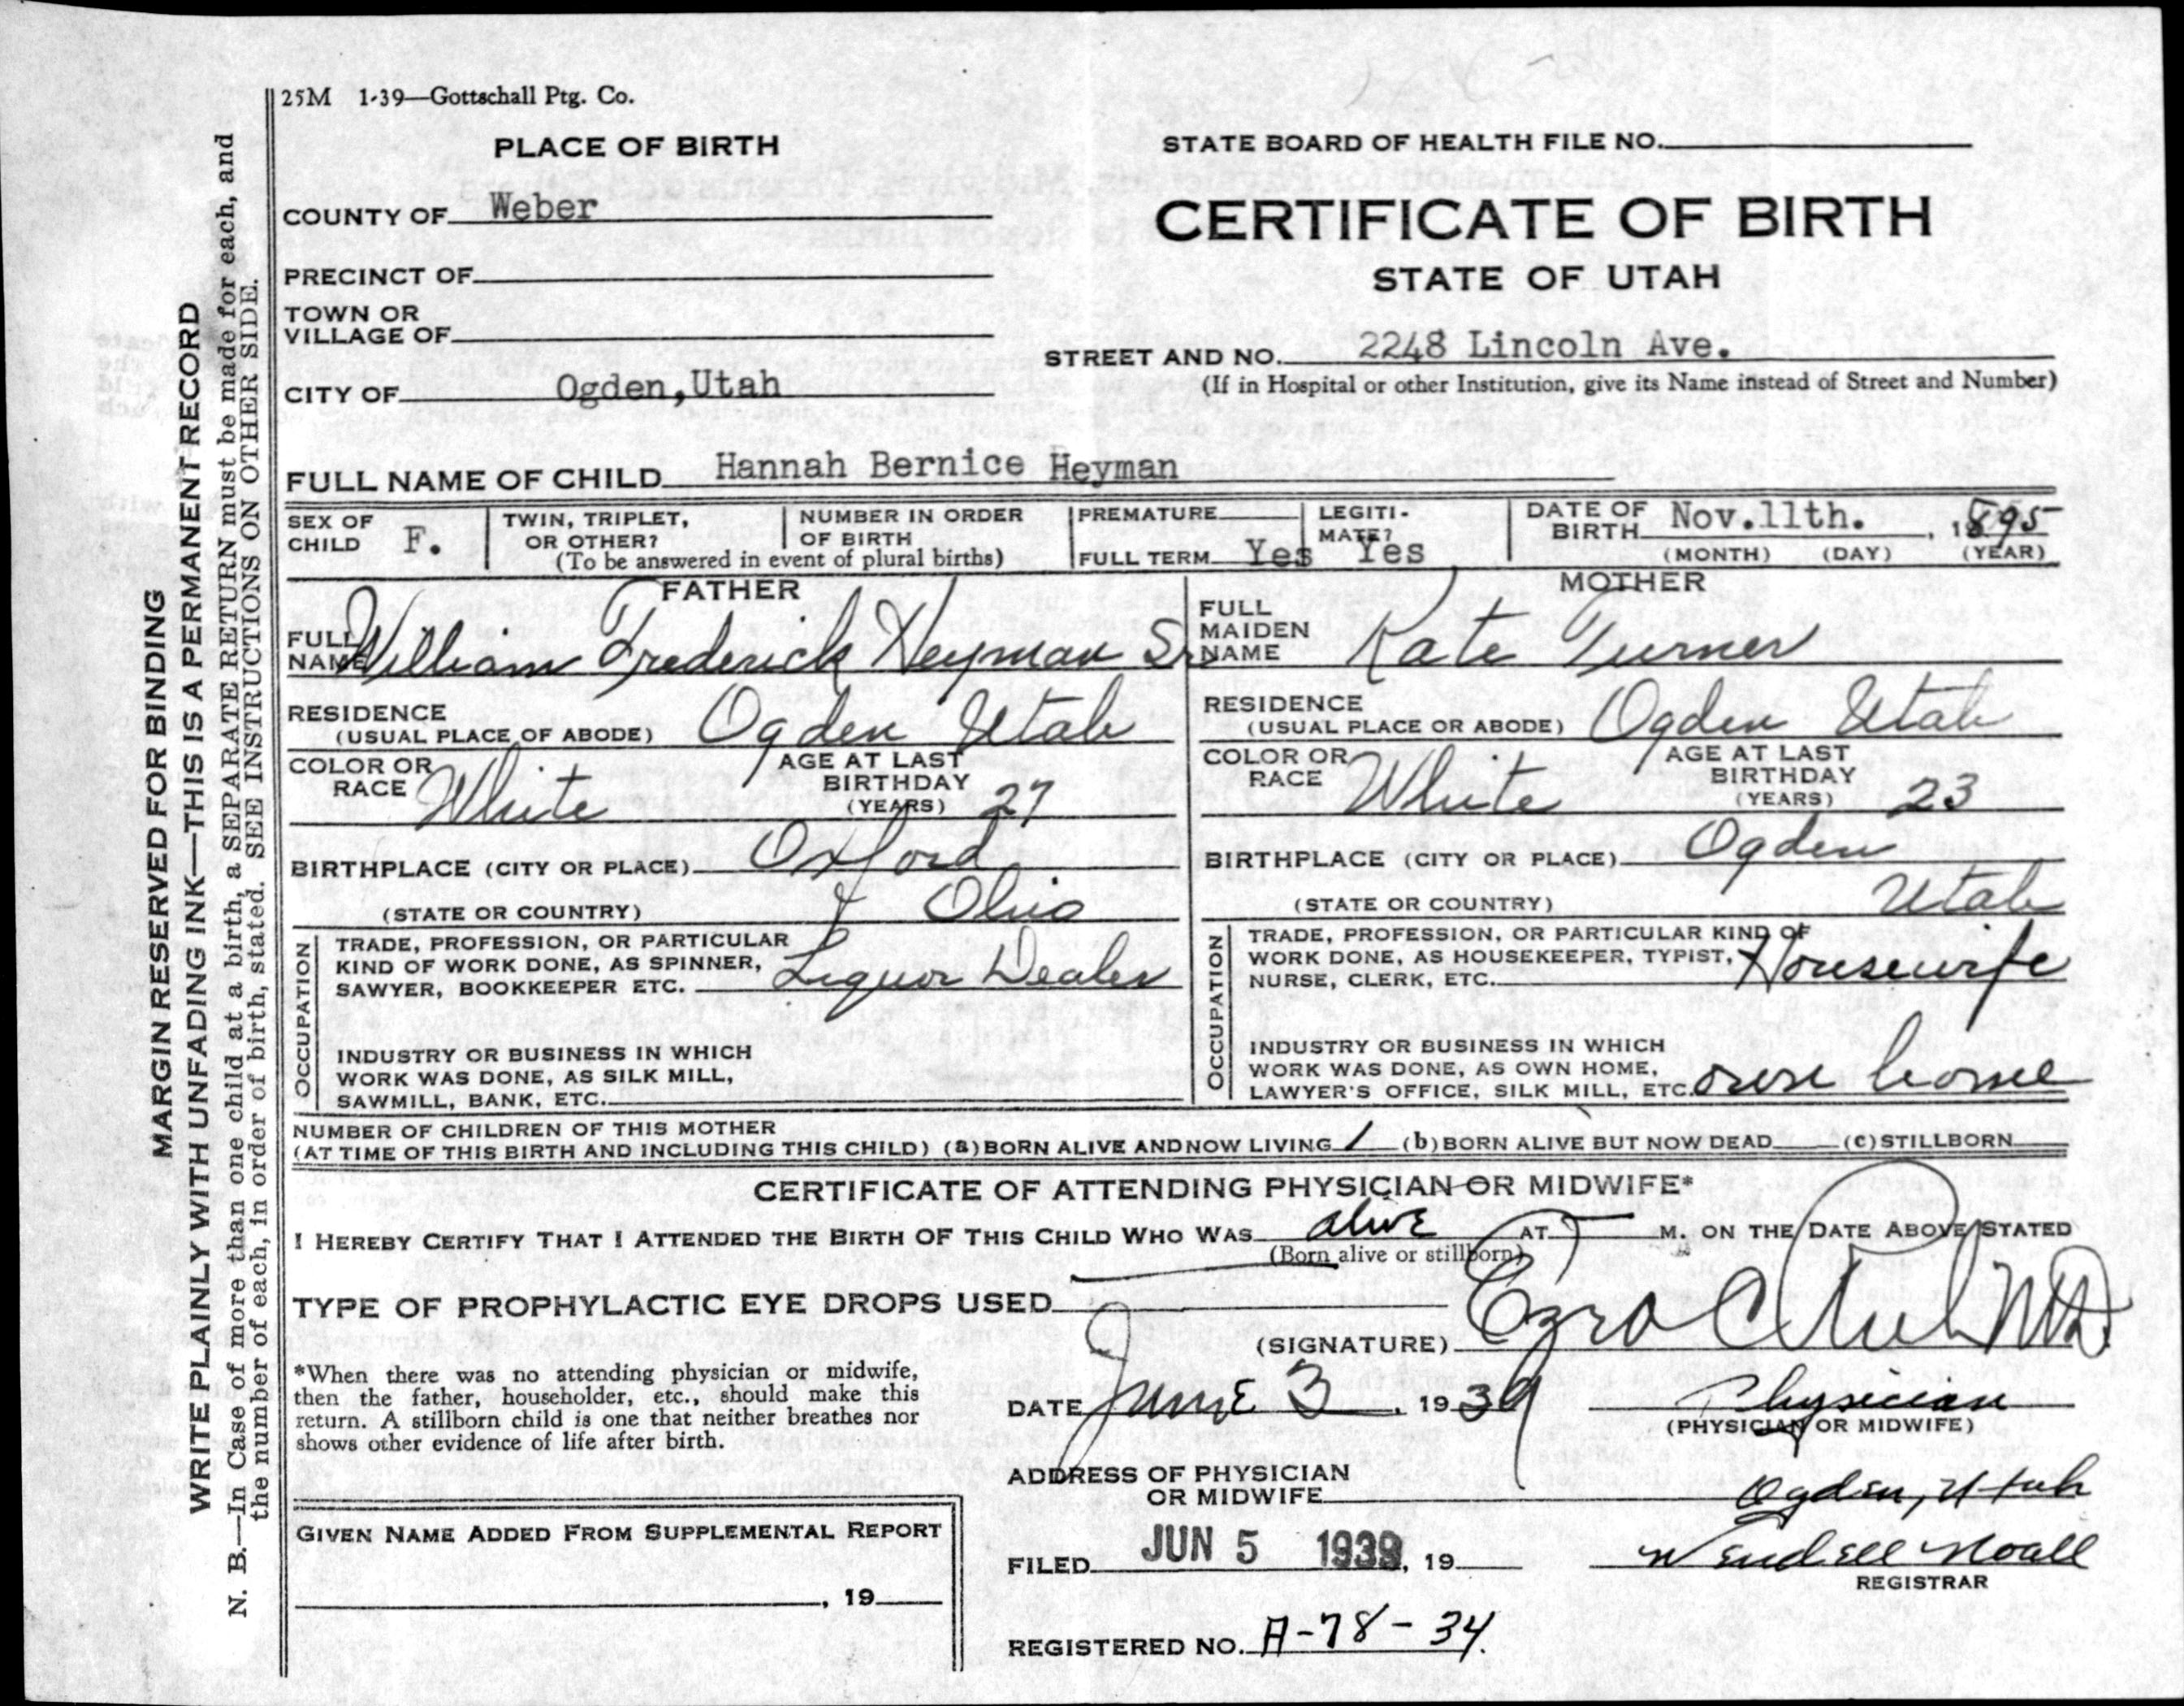 25M 1-39—Gottschall Ptg. Co.
PLACE OF BIRTH
COUNTY OF Weber
PRECINCT OF
TOWN OR
VILLAGE OF
CITY OF Ogden,Utah
STATE BOARD OF HEALTH FILE NO.
CERTIFICATE OF BIRTH
STATE OF UTAH
STREET AND NO. 2248 Lincoln Ave.
(If in Hospital or other Institution, give its Name instead of Street and Number)
FULL NAME OF CHILD Hannah Bernice Heyman
SEX OF
CHILD F.
TWIN, TRIPLET,
OR OTHER?
NUMBER IN ORDER
OF BIRTH
(To be answered in event of plural births)
PREMATURE
FULL TERM Yes
LEGITI-
MATE? Yes
DATE OF
BIRTH Nov.11th. , 1895
(MONTH) (DAY) (YEAR)
FATHER
FULL
NAME William Frederick Heyman Sr
RESIDENCE
(USUAL PLACE OF ABODE) Ogden Utah
COLOR OR
RACE White
AGE AT LAST
BIRTHDAY
(YEARS) 27
BIRTHPLACE (CITY OR PLACE) Oxford
(STATE OR COUNTRY) Ohio
OCCUPATION
TRADE, PROFESSION, OR PARTICULAR
KIND OF WORK DONE, AS SPINNER,
SAWYER, BOOKKEEPER ETC. Liquor Dealer
INDUSTRY OR BUSINESS IN WHICH
WORK WAS DONE, AS SILK MILL,
SAWMILL, BANK, ETC.
MOTHER
FULL
MAIDEN
NAME Kate Turner
RESIDENCE
(USUAL PLACE OR ABODE) Ogden Utah
COLOR OR
RACE White
AGE AT LAST
BIRTHDAY
(YEARS) 23
BIRTHPLACE (CITY OR PLACE) Ogden
(STATE OR COUNTRY) Utah
OCCUPATION
TRADE, PROFESSION, OR PARTICULAR KIND OF
WORK DONE, AS HOUSEKEEPER, TYPIST,
NURSE, CLERK, ETC. Housewife
INDUSTRY OR BUSINESS IN WHICH
WORK WAS DONE, AS OWN HOME,
LAWYER'S OFFICE, SILK MILL, ETC. own home
NUMBER OF CHILDREN OF THIS MOTHER
(AT TIME OF THIS BIRTH AND INCLUDING THIS CHILD) (a) BORN ALIVE AND NOW LIVING 1 (b) BORN ALIVE BUT NOW DEAD (c) STILLBORN
CERTIFICATE OF ATTENDING PHYSICIAN OR MIDWIFE*
I HEREBY CERTIFY THAT I ATTENDED THE BIRTH OF THIS CHILD WHO WAS alive AT M. ON THE DATE ABOVE STATED
(Born alive or stillborn)
TYPE OF PROPHYLACTIC EYE DROPS USED
(SIGNATURE) Ezra C MD.
*When there was no attending physician or midwife,
then the father, householder, etc., should make this
return. A stillborn child is one that neither breathes nor
shows other evidence of life after birth.
DATE June 3 , 1939 Physician
(PHYSICIAN OR MIDWIFE)
ADDRESS OF PHYSICIAN
OR MIDWIFE Ogden, Utah
GIVEN NAME ADDED FROM SUPPLEMENTAL REPORT
, 19
FILED JUN 5 1939, 19 Wendell Noall
REGISTRAR
REGISTERED NO. A-78-34.
MARGIN RESERVED FOR BINDING
WRITE PLAINLY WITH UNFADING INK—THIS IS A PERMANENT RECORD
N. B.—In Case of more than one child at a birth, a SEPARATE RETURN must be made for each, and
the number of each, in order of birth, stated. SEE INSTRUCTIONS ON OTHER SIDE.